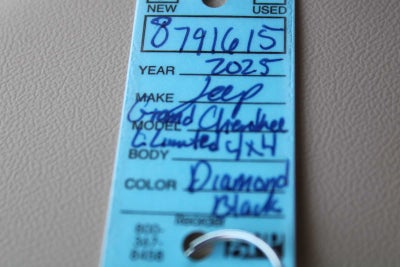 NEW USED
8791615
YEAR 2025
MAKE Jeep
MODEL Grand Cherokee
Limited 4x4
BODY
COLOR Diamond
Black
Reorder
800-
367-